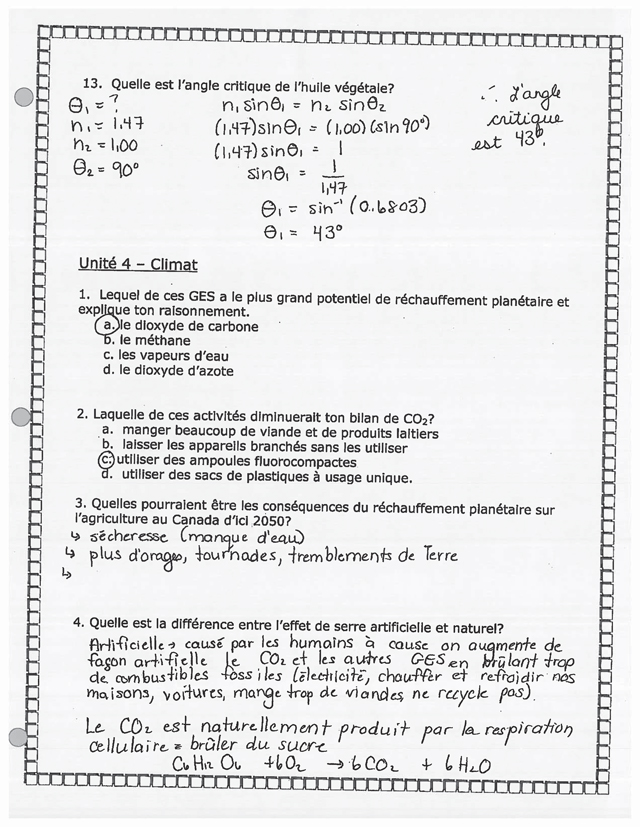 13. Quelle est l'angle critique de l'huile végétale?
θ₁ = ?
n₁ = 1,47
n₂ = 1,00
θ₂ = 90°
n₁ sinθ₁ = n₂ sinθ₂
(1,47)sinθ₁ = (1,00)(sin 90°)
(1,47)sinθ₁ = 1
sinθ₁ = 1/1,47
θ₁ = sin⁻¹ (0.6803)
θ₁ = 43°
∴ L'angle
critique
est 43°.
Unité 4 – Climat
1. Lequel de ces GES a le plus grand potentiel de réchauffement planétaire et
explique ton raisonnement.
a. le dioxyde de carbone
b. le méthane
c. les vapeurs d'eau
d. le dioxyde d'azote
2. Laquelle de ces activités diminuerait ton bilan de CO₂?
a. manger beaucoup de viande et de produits laitiers
b. laisser les appareils branchés sans les utiliser
c. utiliser des ampoules fluorocompactes
d. utiliser des sacs de plastiques à usage unique.
3. Quelles pourraient être les conséquences du réchauffement planétaire sur
l'agriculture au Canada d'ici 2050?
↳ sécheresse (manque d'eau)
↳ plus d'orages, tournades, tremblements de Terre
↳
4. Quelle est la différence entre l'effet de serre artificielle et naturel?
Artificielle → causé par les humains à cause on augmente de
façon artifielle le CO₂ et les autres GES en brûlant trop
de combustibles fossiles (électricité, chauffer et refraidir nos
maisons, voitures, mange trop de viandes, ne recycle pas).
Le CO₂ est naturellement produit par la respiration
cellulaire = brûler du sucre
C₆H₁₂O₆ + 6O₂ → 6CO₂ + 6H₂O